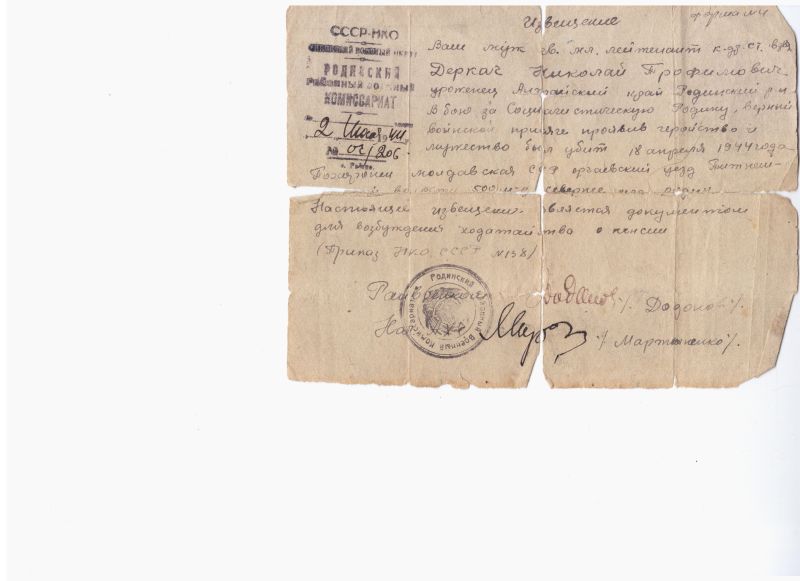 форма №4
Извещение
СССР-НКО
РОДИНСКИЙ
РАЙОННЫЙ ВОЕННЫЙ
КОМИССАРИАТ
2
№ 02/206
Ваш муж гв. мл. лейтенант к-др. ст. взв.
Деркач Николай Трофимович
уроженец Алтайский край Родинский р-н
В бою за Социалистическую Родину, верный
воинской присяге проявив геройство и
мужество был убит 18 апреля 1944 года
Похоронен молдавская ССР оргеевский уезд
500 севернее
Настоящее извещение является документом
для возбуждения ходатайства о пенсии
(Приказ НКО СССР №138)
Райвоенком /. Додоно /.
Нач / Мартыненко /.
Родинский Районный Военный Комиссариат